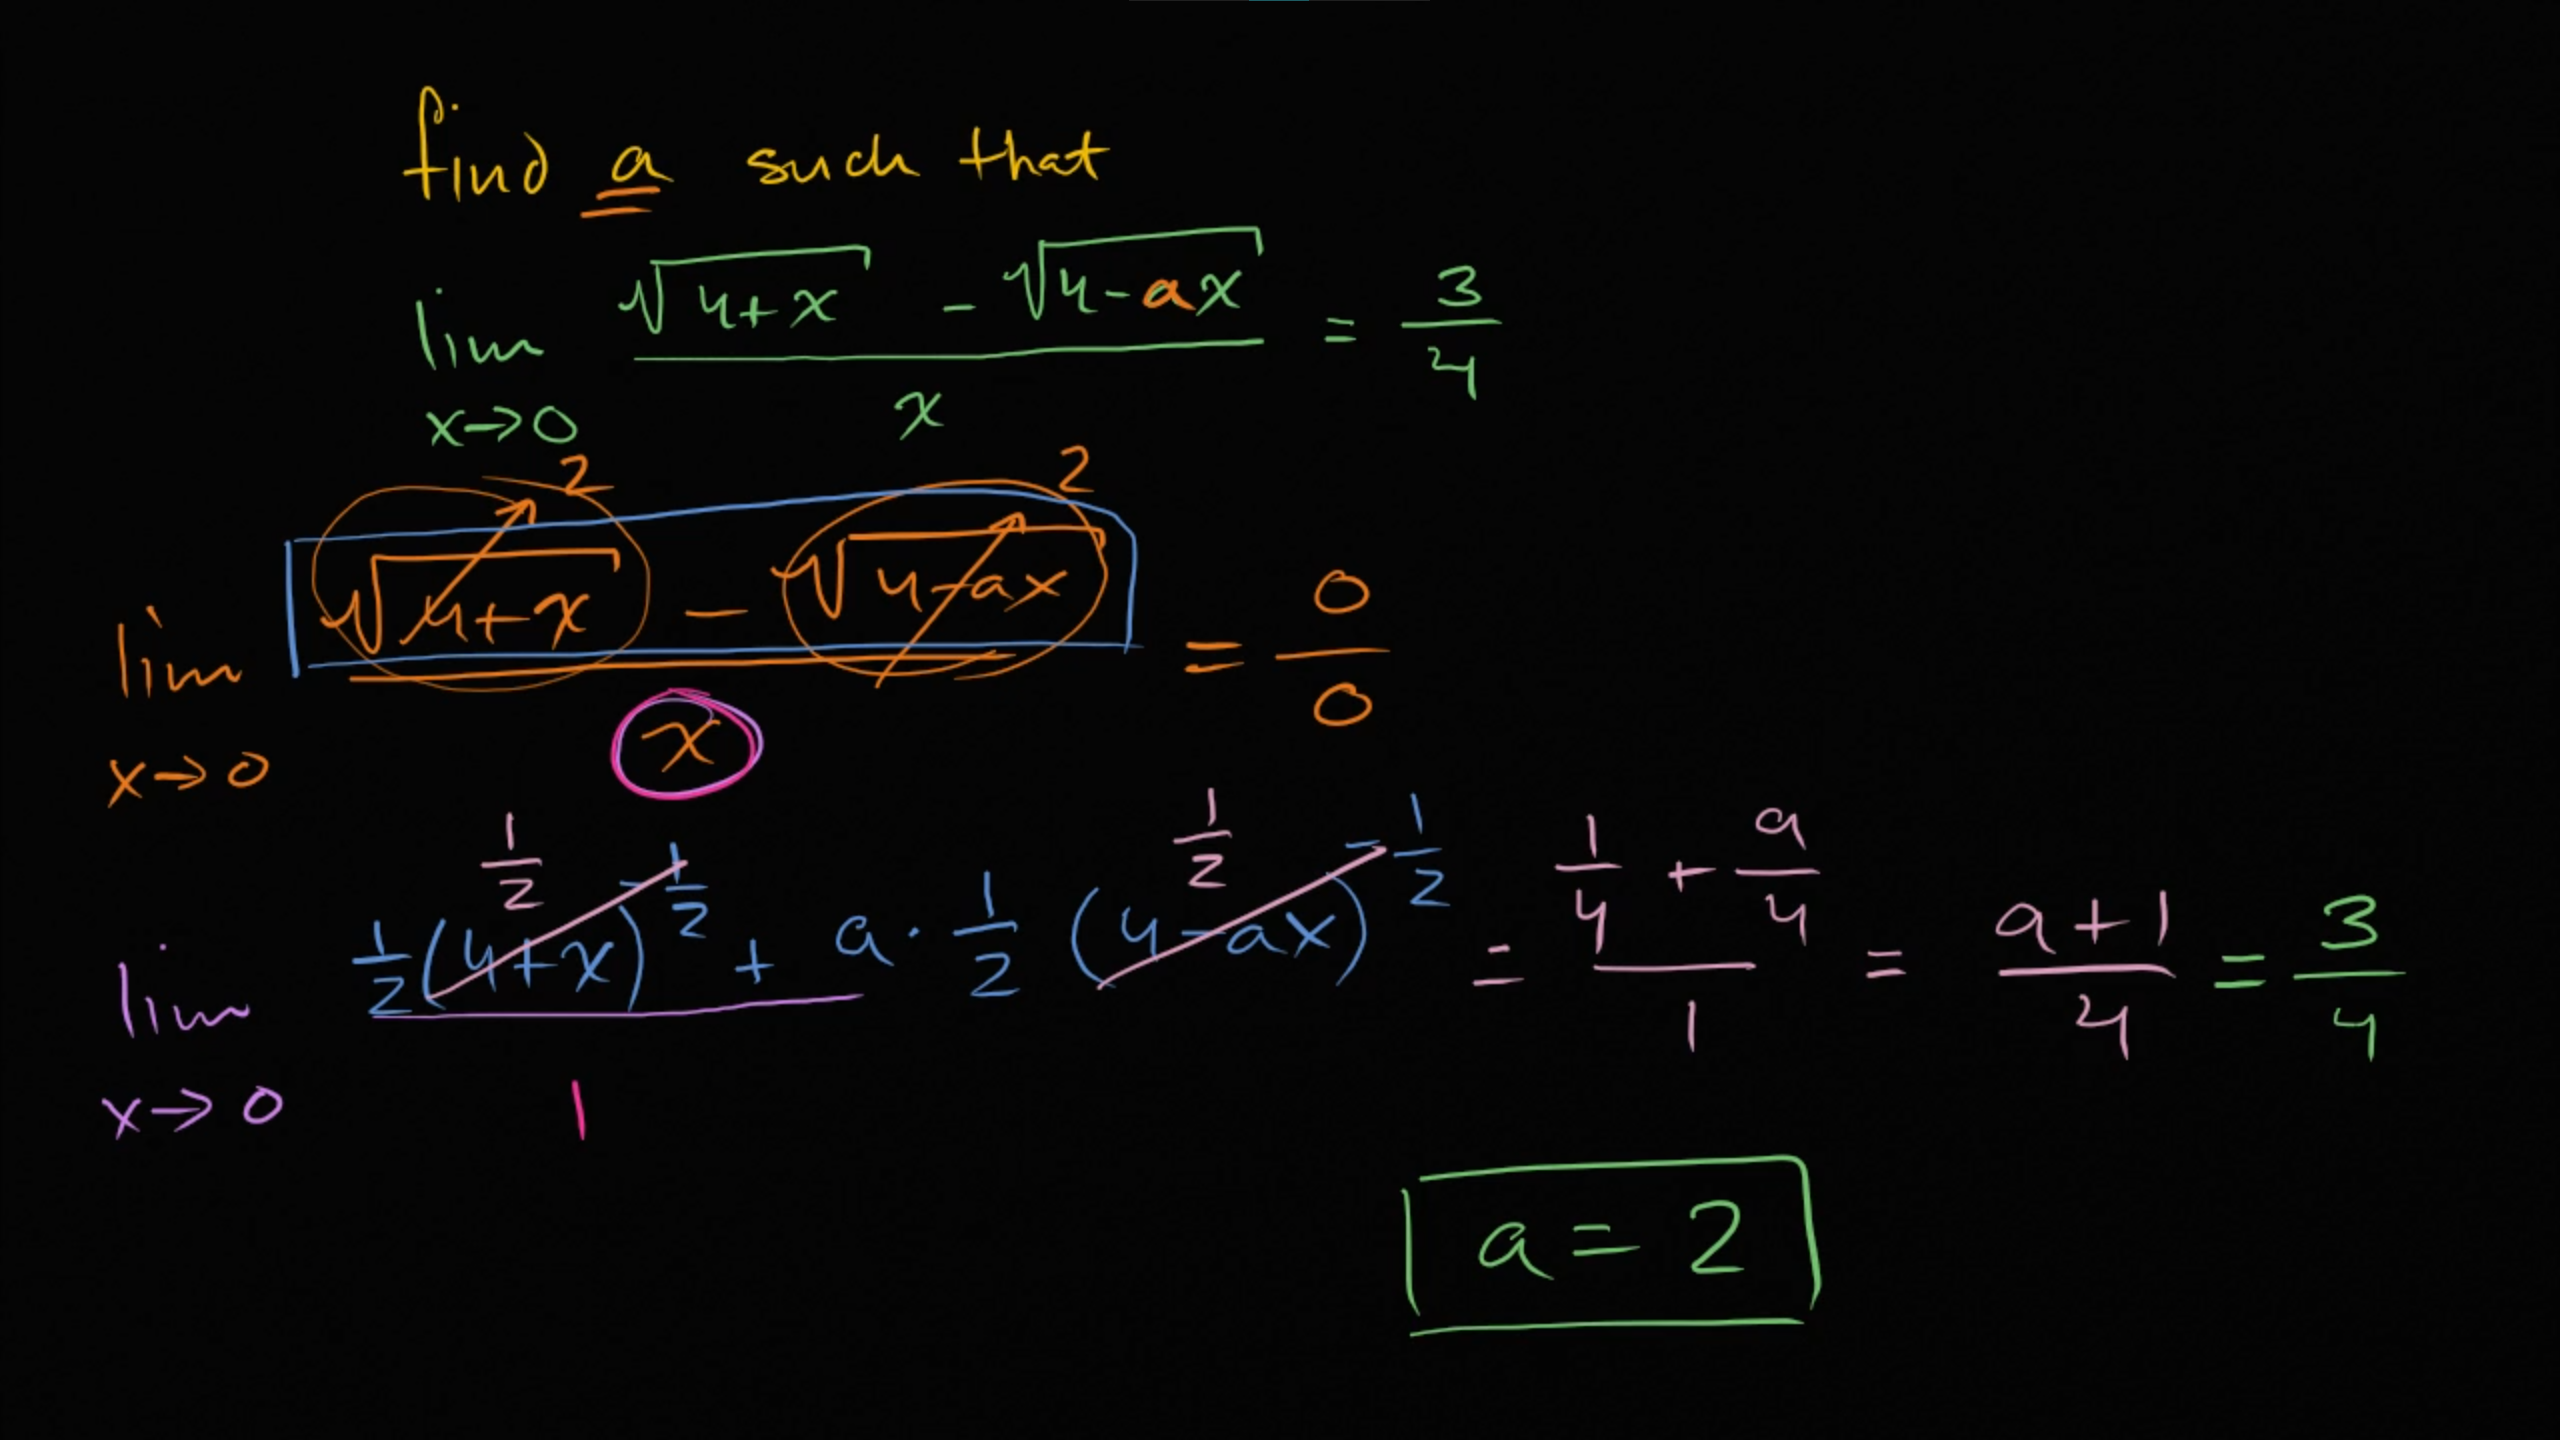 find a such that
lim x→0 (√(4+x) - √(4-ax)) / x = 3/4
lim x→0 (√(4+x) - √(4-ax)) / x = 0/0
2 2
lim x→0 (1/2 (4+x)^(-1/2) + a · 1/2 (4-ax)^(-1/2)) / 1 = (1/4 + a/4) / 1 = (a+1)/4 = 3/4
1/2 1/2
a = 2